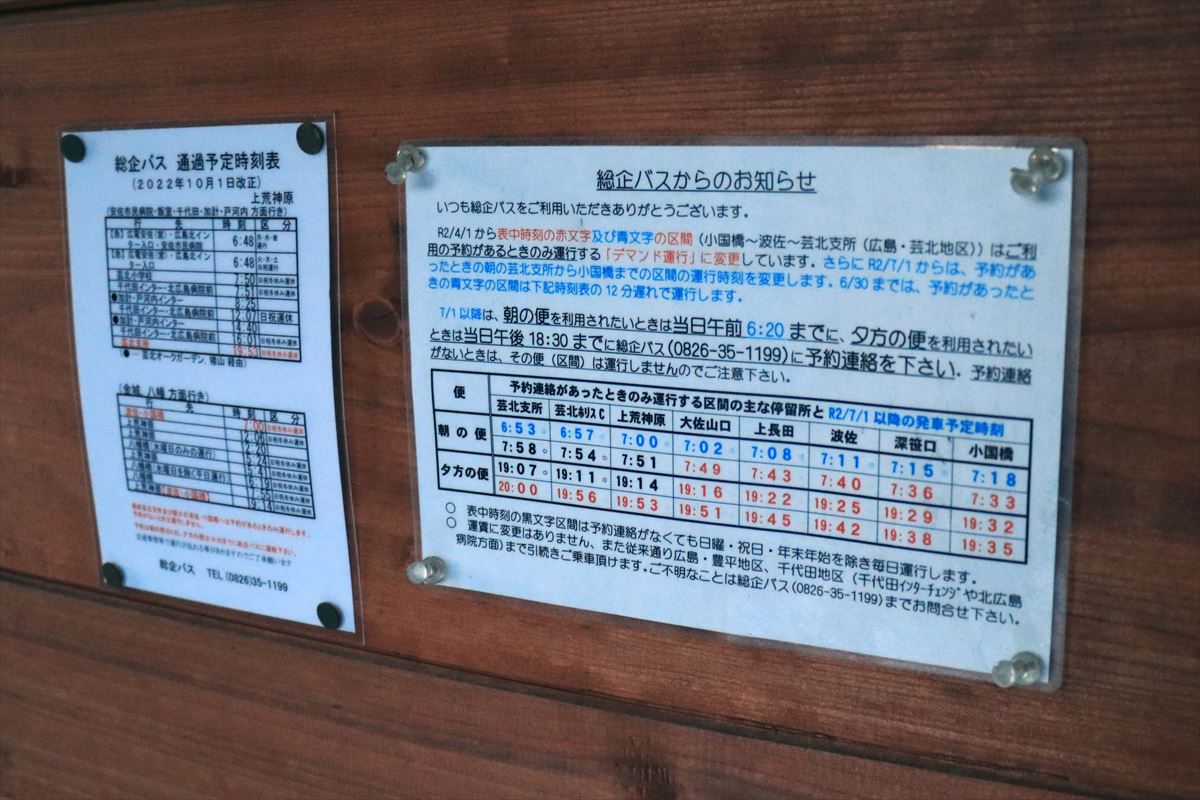 総企バス 通過予定時刻表
(2022年10月1日改正)
上荒神原
(安佐市民病院・飯室・千代田・加計・戸河内 方面行き)
行 先 時 刻 区 分
6:48
6:48
芸北小学校 7:50 日祝冬休み運休
千代田インター・北広島病院前 7:51 日祝冬休み運休
●加計・戸河内インター 8:25
千代田インター・北広島病院前 12:07 日祝運休
●加計・戸河内インター 14:40
千代田インター・北広島病院前 16:01 日祝冬休み運休
芸北支所 19:53 日祝冬休み運休
(金城 八幡 方面行き)
行 先 時 刻 区 分
波佐・小国橋 7:00 日祝冬休み運休
総企バス TEL(0826)35-1199
総企バスからのお知らせ
いつも総企バスをご利用いただきありがとうございます。
R2/4/1から表中時刻の赤文字及び青文字の区間(小国橋~波佐~芸北支所(広島・芸北地区))はご利
用の予約があるときのみ運行する「デマンド運行」に変更しています。さらにR2/7/1からは、予約があ
ったときの朝の芸北支所から小国橋までの区間の運行時刻を変更します。6/30までは、予約があったと
きの青文字の区間は下記時刻表の12分遅れで運行します。
7/1以降は、朝の便を利用されたいときは当日午前6:20までに、夕方の便を利用されたい
ときは当日午後18:30までに総企バス(0826-35-1199)に予約連絡を下さい。予約連絡
がないときは、その便(区間)は運行しませんのでご注意下さい。
便 予約連絡があったときのみ運行する区間の主な停留所とR2/7/1以降の発車予定時刻
芸北支所 芸北ホリスC 上荒神原 大佐山口 上長田 波佐 深笹口 小国橋
朝の便 6:53 6:57 7:00 7:02 7:08 7:11 7:15 7:18
7:58 7:54 7:51 7:49 7:43 7:40 7:36 7:33
夕方の便 19:07 19:11 19:14 19:16 19:22 19:25 19:29 19:32
20:00 19:56 19:53 19:51 19:45 19:42 19:38 19:35
○ 表中時刻の黒文字区間は予約連絡がなくても日曜・祝日・年末年始を除き毎日運行します。
○ 運賃に変更はありません、また従来通り広島・豊平地区、千代田地区(千代田インターチェンジや北広島
病院方面)まで引続きご乗車頂けます。ご不明なことは総企バス(0826-35-1199)までお問合せ下さい。